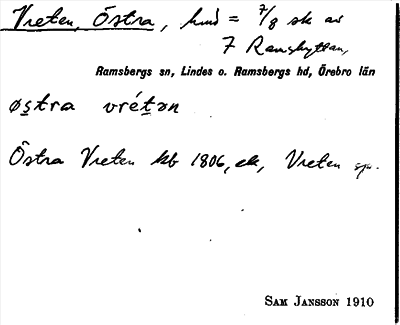 Vreten, Östra, hmd = 7/8 sk av
7 Ramshyttan,
Ramsbergs sn, Lindes o. Ramsbergs hd, Örebro län
östra vrétən
Östra Vreten kb 1806, ek, Vreten
SAM JANSSON 1910